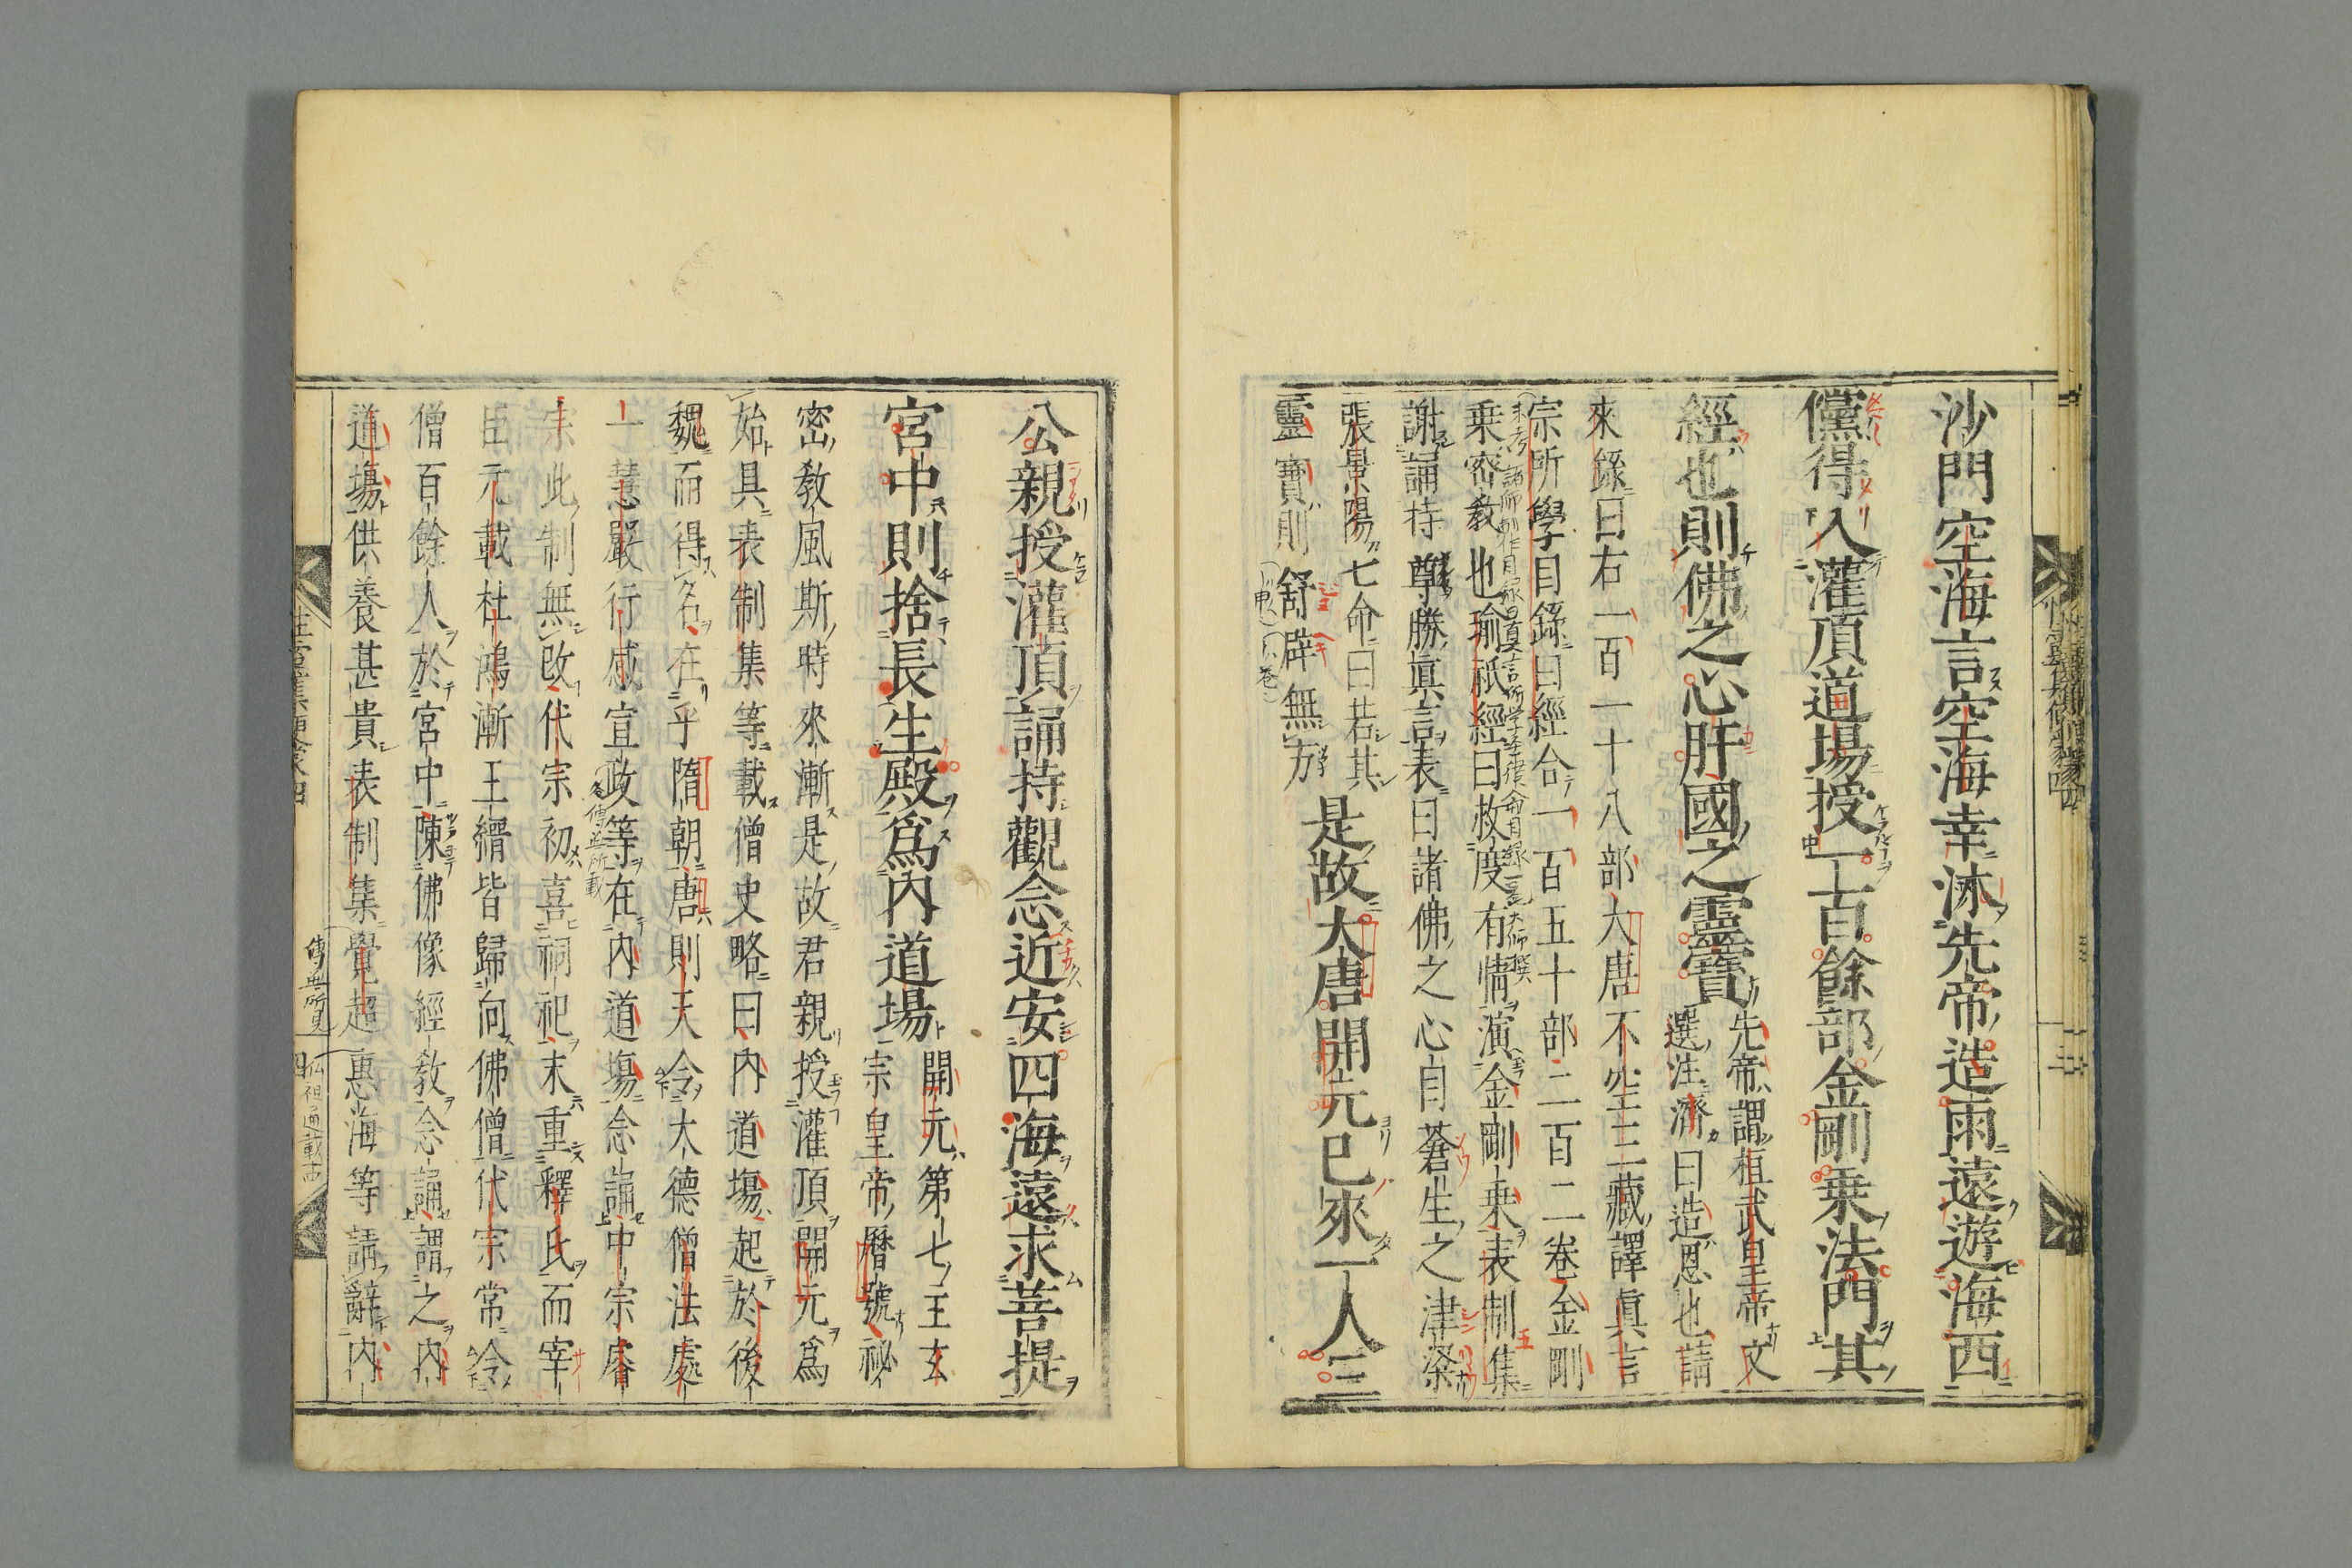 沙門空海言空海幸沐先帝造雨遠遊海西
儻得入灌頂道場授一百餘部金剛乘法門其
經也則佛之心肝國之靈寶
先帝謂桓武皇帝文
選注濟曰造恩也請
來錄曰右一百一十八部大唐不空三藏譯眞言
宗所學目錄曰經合一百五十部二百二卷金剛
乘密敎也瑜祇經曰救度有情演金剛乘表制集
謝誦持尊勝眞言表曰諸佛之心自蒼生之津梁
張景陽七命曰若其
靈寶則舒辟無方
是故大唐開元已來一人三
公親授灌頂誦持觀念近安四海遠求菩提
宮中則捨長生殿爲內道場
開元第七主玄
宗皇帝曆號祕
密敎風斯時來漸是故君親授灌頂開元爲
始具表制集等載僧史略曰內道場起於後
魏而得名在乎隋朝唐則天令大德僧法處
一慧嚴行感宣政等在內道場念誦中宗睿
宗此制無改代宗初喜祠祀末重釋氏而宰
臣元載杜鴻漸王縉皆歸向佛僧代宗常令
僧百餘人於宮中陳佛像經敎念誦謂之內
道場供養甚貴表制集覺超惠海等請辭內